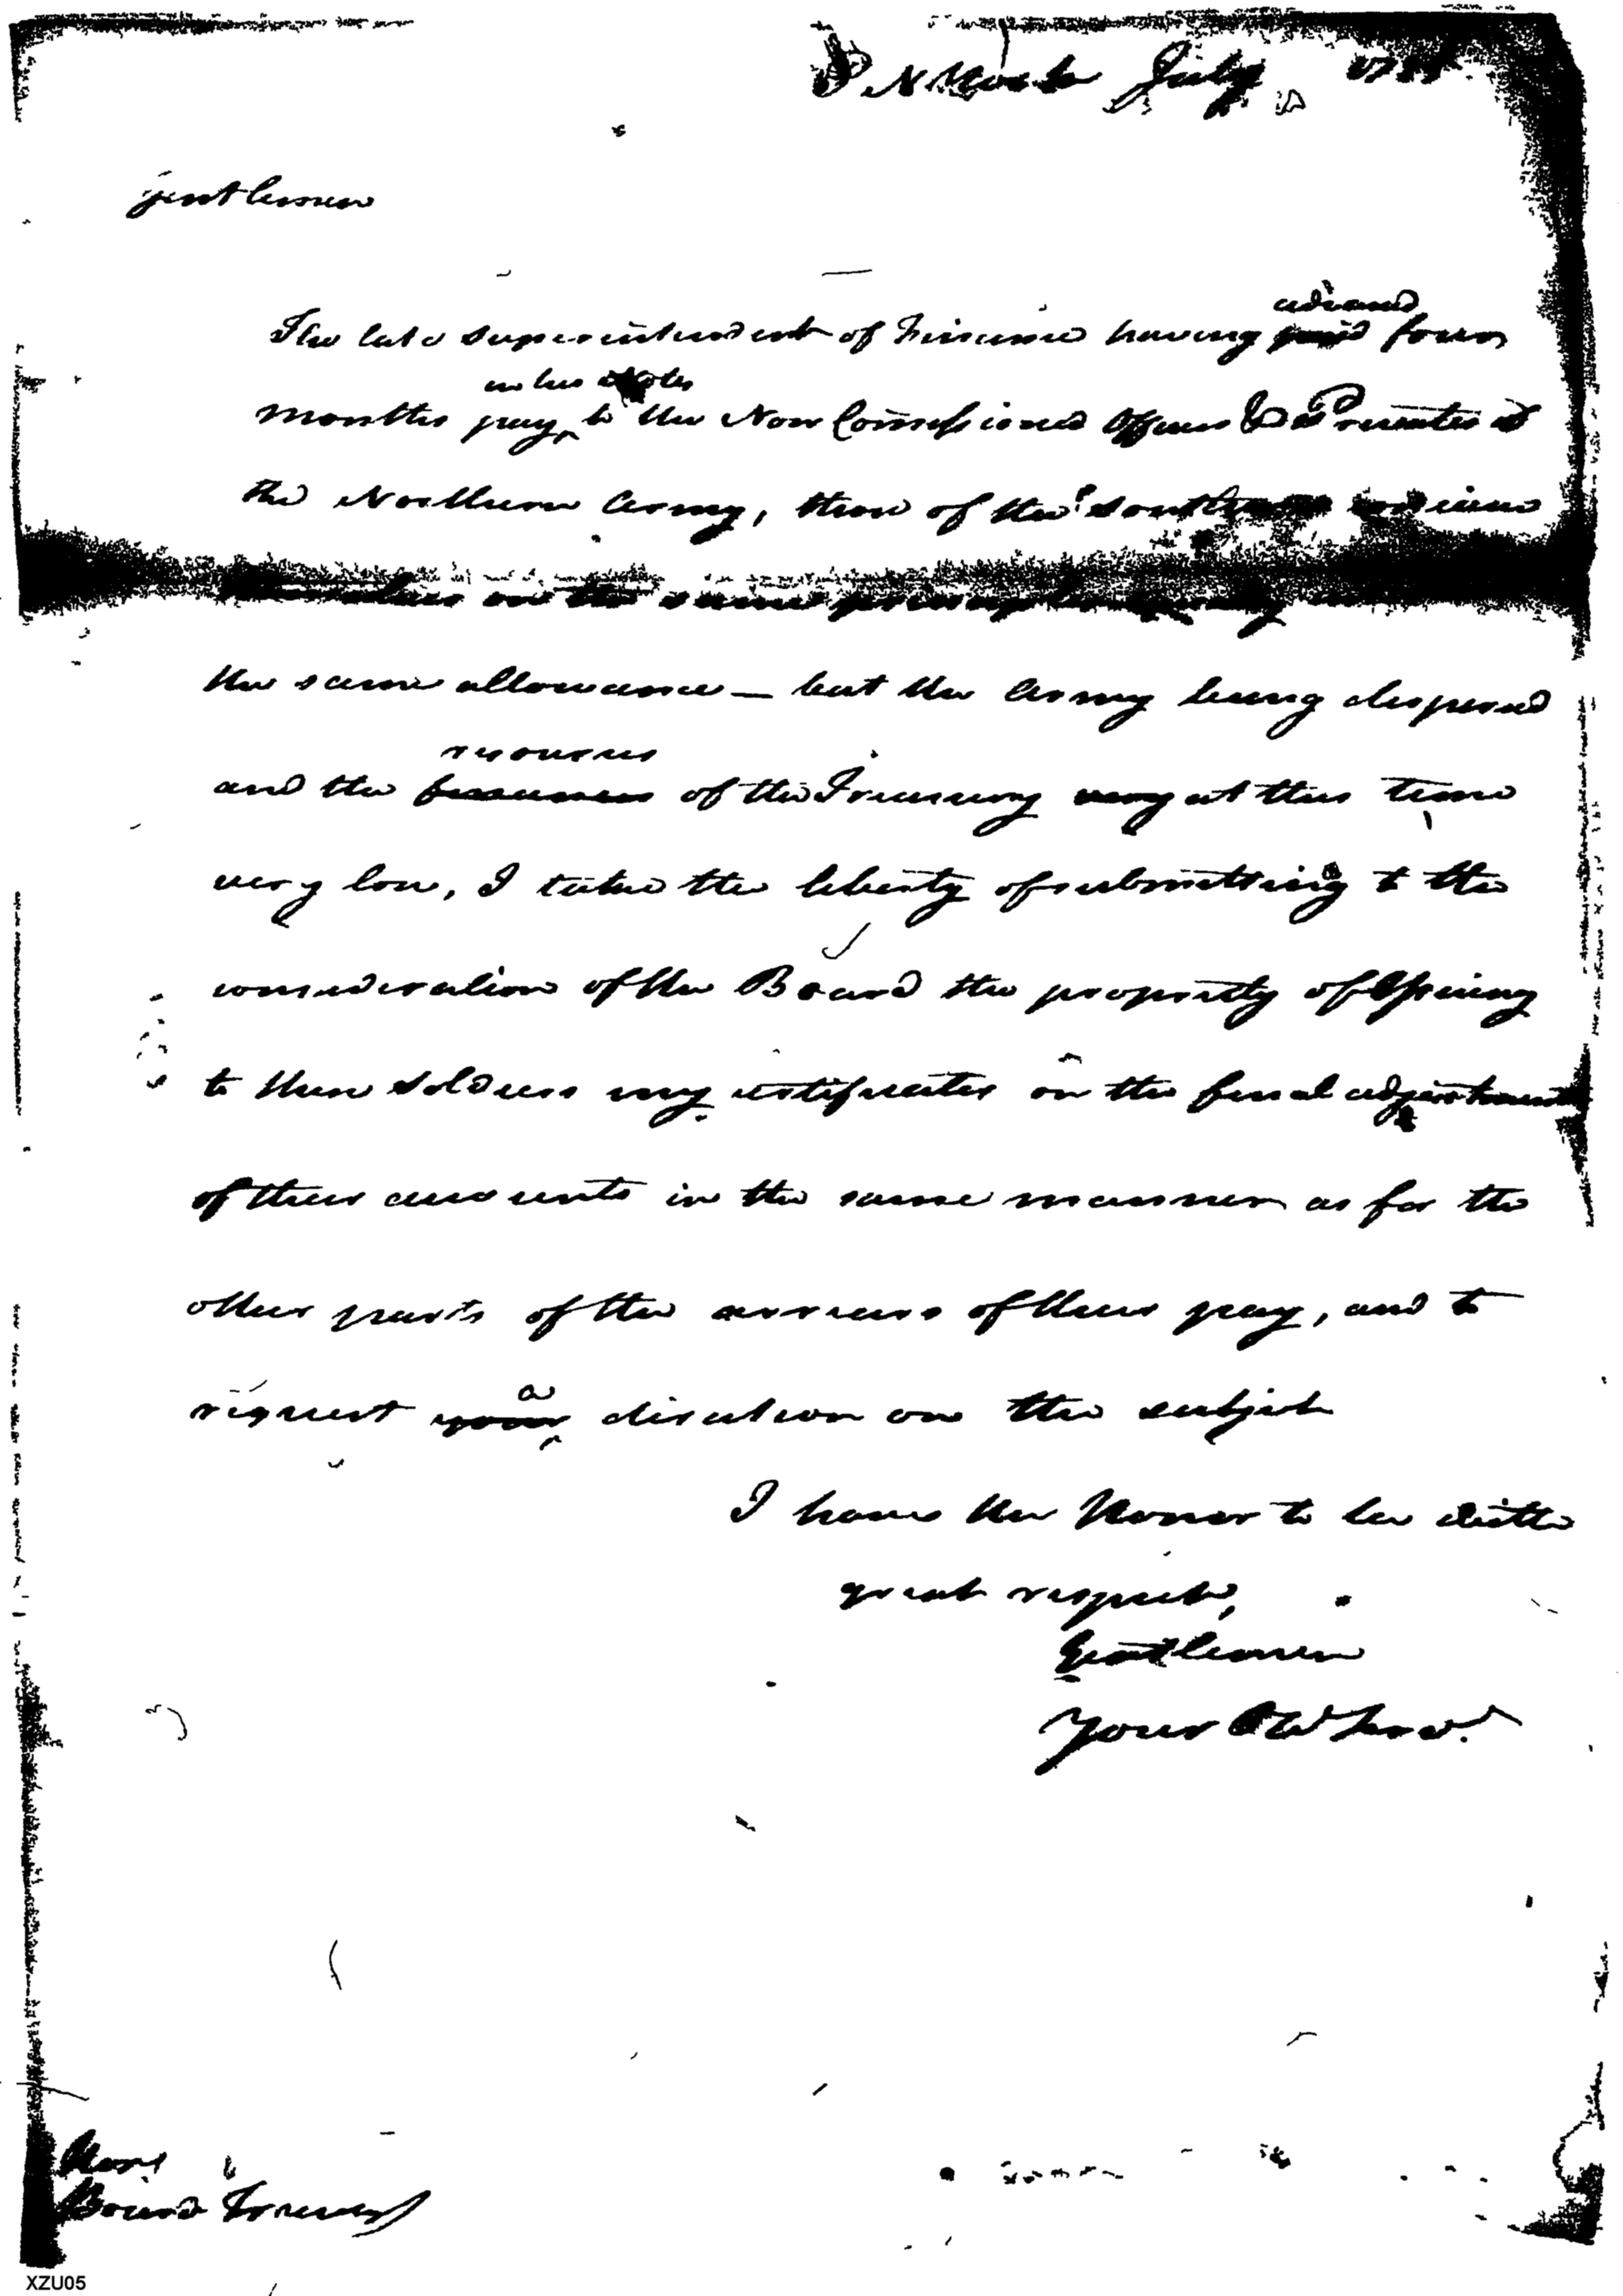 N York July 1785
Gentlemen
advanced
The late Superintendent of Finance having paid four
in his Notes
months pay to the Non Comissioned Officers & Privates of
the Northern Army, those of the Southern conceive
themselves on the same principles
the same allowance — but the Army being dispersed
resources
and the finances of the Treasury very at this time
very low, I take the liberty of submitting to the
consideration of the Board the propriety of issuing
to these Soldiers my certificates on the final adjustment
of their accounts in the same manner as for the
other parts of the arrears of their pay, and to
a
request your direction on the subject
I have the Honor to be with
great respect,
Gentlemen
Your Ob hs
Honl
Board Treasury
XZU05